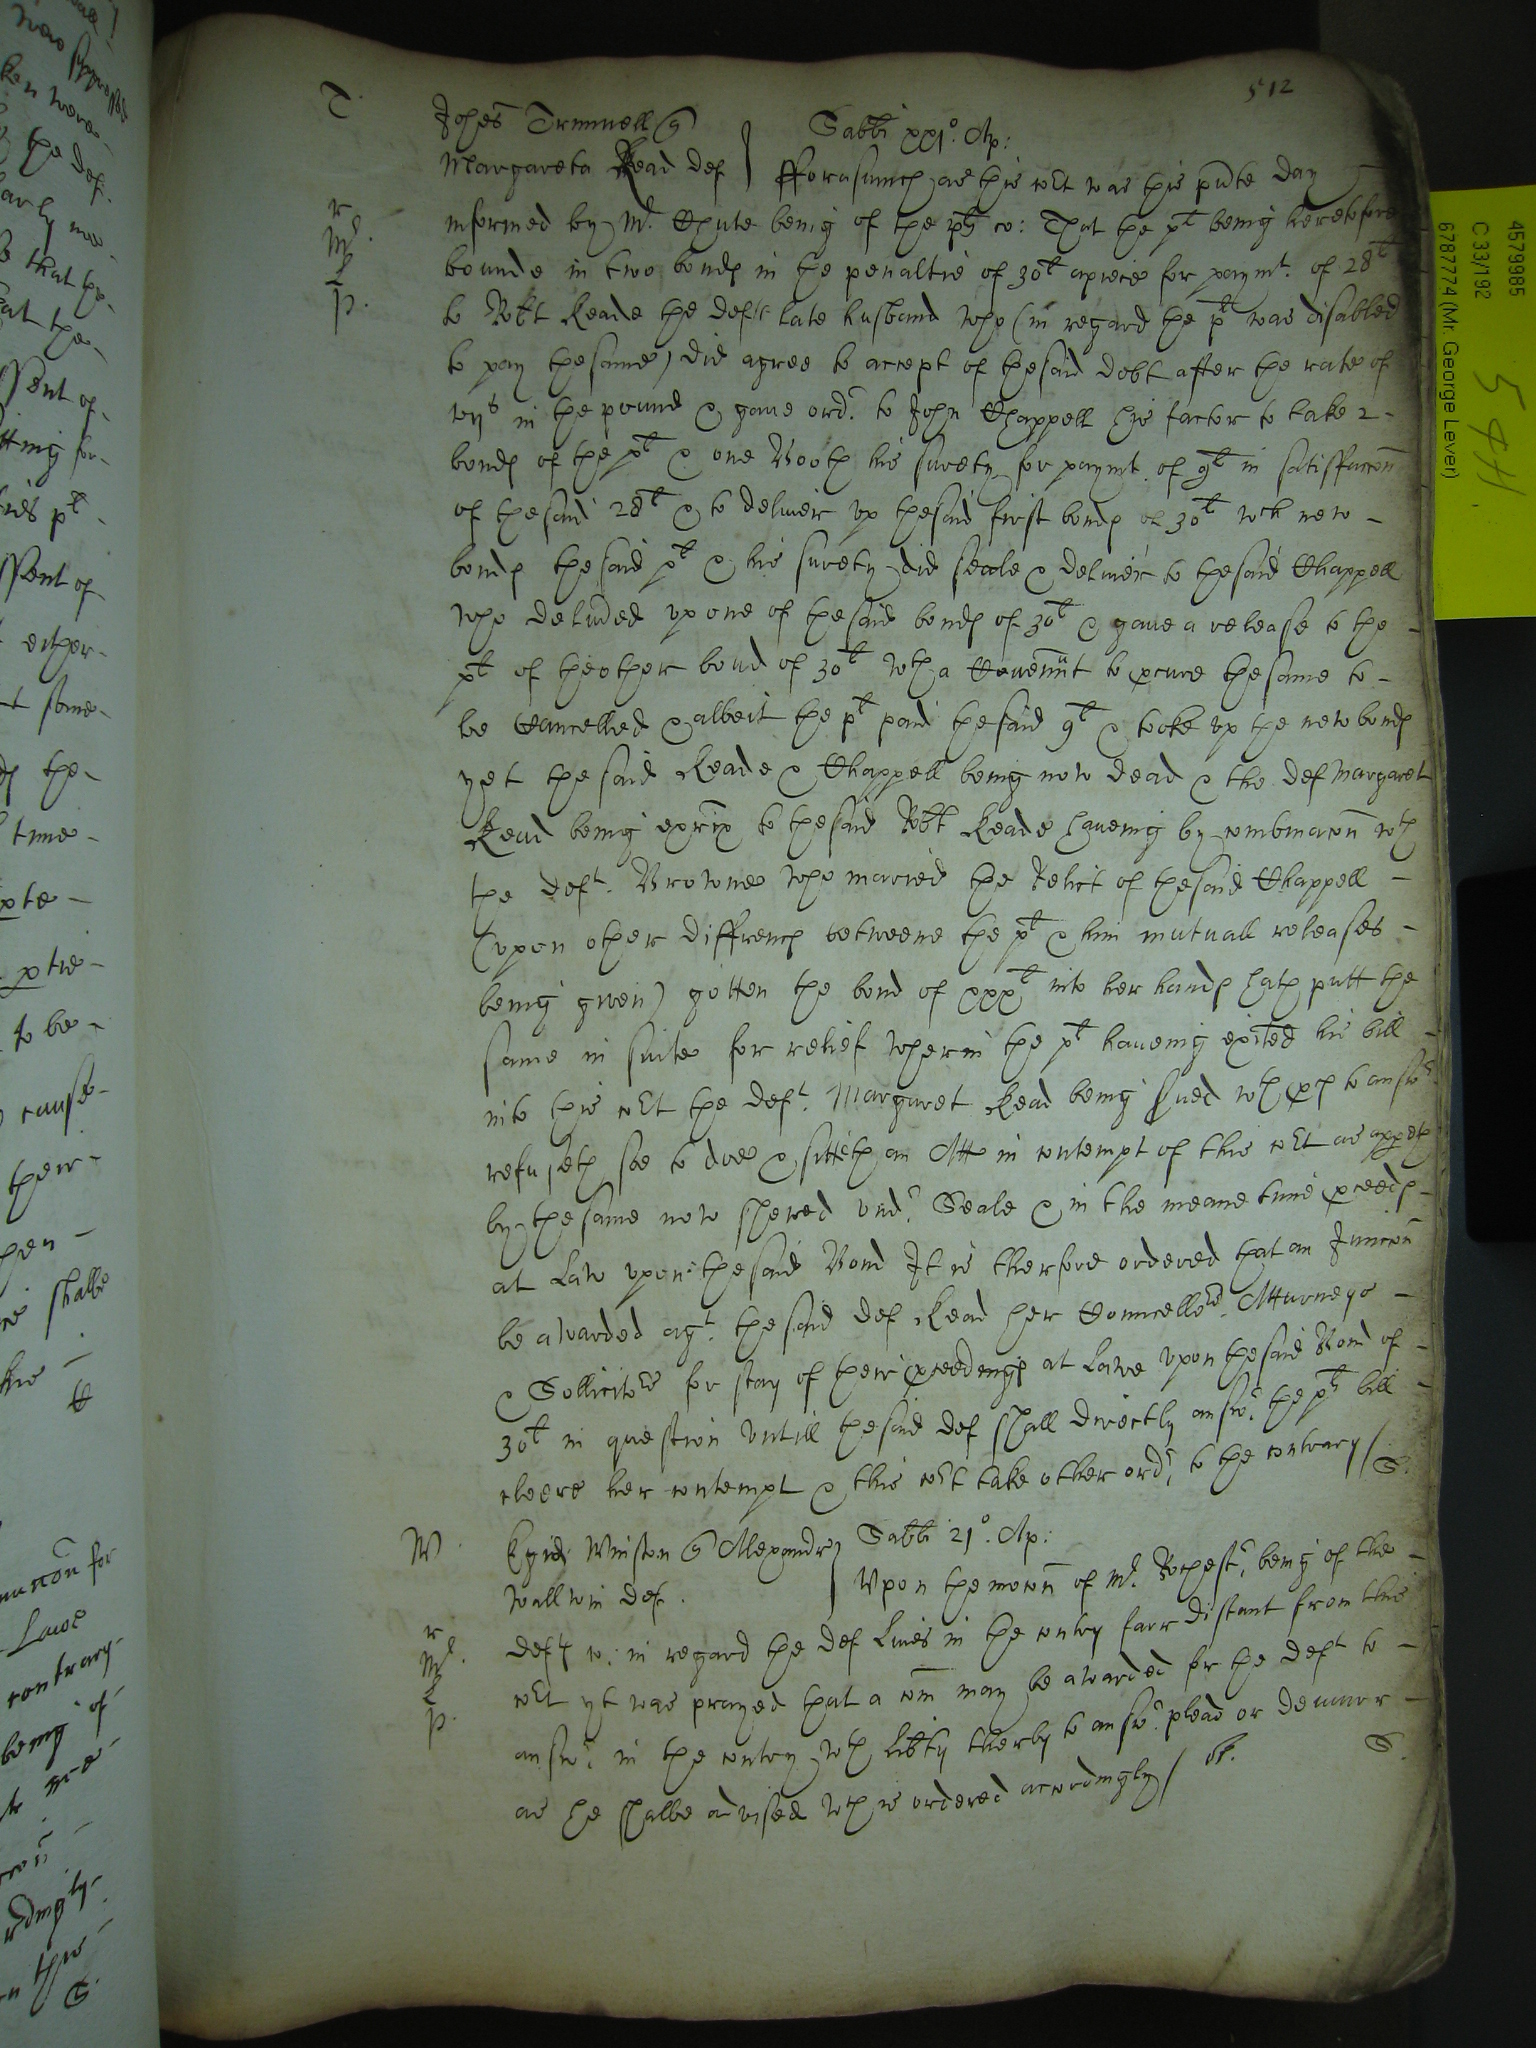 512
T. Johes Trimnell q
Margareta Read def
Sabbi xxj.º Ap:
fforasmuch as this cort was this pnte day
informed by Mr. Chute being of the pls co: That the plt being heretofore
bounde in two bonds in the penaltie of 30l apiece for paymt. of 28l
to Robt Reade the defts late husband who (in regard the plt was disabled
to pay the same) did agree to accept of the said debt after the rate of
vjs in the pound & gave ordr. to John Chappell his factor to take 2
bonds of the plt & one Booth his surety for paymt. of 9l in satisfaccon
of the said 28l & to deliver up the said first bonds of 30l wch new
bonds the said plt & his surety did seale & deliver to the said Chappell
who delivded up one of the said bonds of 30l & gave a release to the
plt of the other bond of 30l wth a Covennt to pcure the same to
be Cancelled & albeit the plt paid the said 9l & tooke up the new bonds
yet the said Reade & Chappell being now dead & the def Margaret
Read being exrix to the said Robt Reade haveing by combinacon wth
the deft. Browne who married the Relict of the said Chappell
(upon other differencs betweene the plt & him mutuall releases
being given) gotten the bond of xxxl into her hands hath putt the
same in suite for relief wherin the plt haveing exited his bill
into this cort the deft. Margaret Read being sued wth pcs to answr.
refuseth soe to doe & sitteth an Att in contempt of this cort as appeth
by the same now shewed undr. Seale & in the meane time pceeds
at Law upon the said Bond It is therfore ordered that an Iniuncon
be awarded agt. the said def Read her Councellors Atturneys
& Sollicitors for stay of their pceedings at Lawe upon the said Bond of
30l in question Untill the said def shall directly answr. the plts bill
cleere her contempt & this cort take other ordr. to the contrary / S.
W. Egid Winston q Alexandr
Wallwin def.
Sabbi 21º. Ap:
Upon the mocon of Mr. Rochestr. being of the
defts co: in regard the def Lives in the contry farr distant from this
cort yt was prayed that a com may be awarded for the deft to
answr. in the contry wth libty therby to answr. plead or demurr
as he shalbe advised wch is ordered accordingly / S.
r
Mr.
p.
r
Mr.
p.
4579985
C 33/192
6787774 (Mr. George Lever)